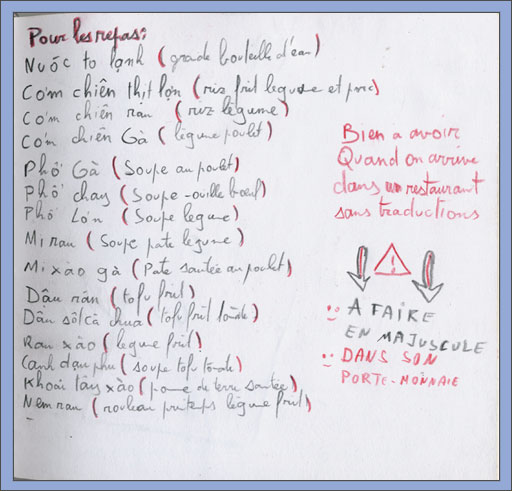 Pour les repas:
Nước to lạnh (grande bouteille d'eau)
Cơm chiên thịt lợn (riz frit legume et porc)
Cơm chiên rán (riz légume)
Cơm chiên Gà (légume poulet)
Phở Gà (Soupe au poulet)
Phở chay (Soupe -ouille bœuf)
Phở Lơn (Soupe legume)
Mi rau (Soupe pate legume)
Mi xào gà (Pate sautée au poulet)
Dâu rán (tofu frit)
Dâu sôt cà chua (tofu frit tomate)
Rau xào (legume frit)
Canh dau phu (soupe tofu tomate)
Khoai tây xào (pomme de terre sautée)
Nem rau (rouleau printemps légume frit)
Bien a avoir
Quand on arrive
dans un restaurant
sans traductions
!
A FAIRE
EN MAJUSCULE
DANS SON
PORTE-MONNAIE